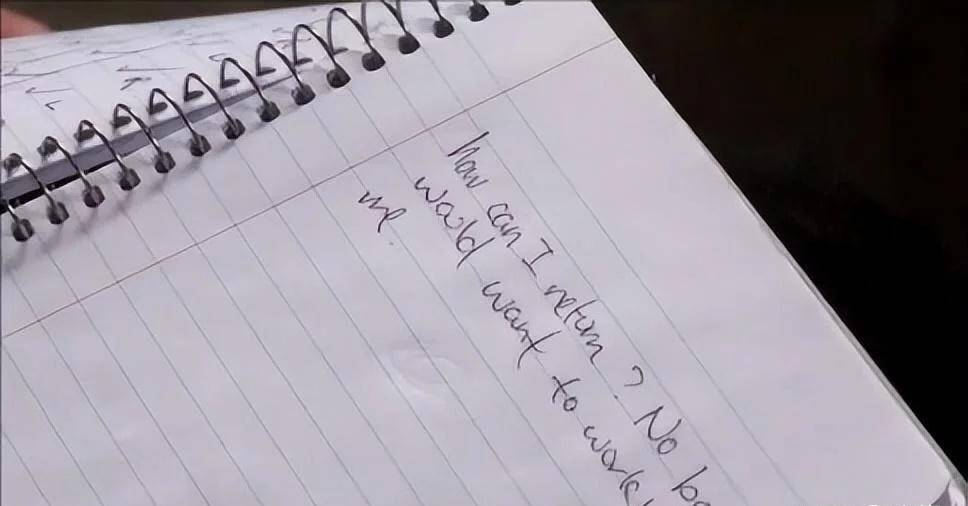 how can I return? No
would want to work
me.